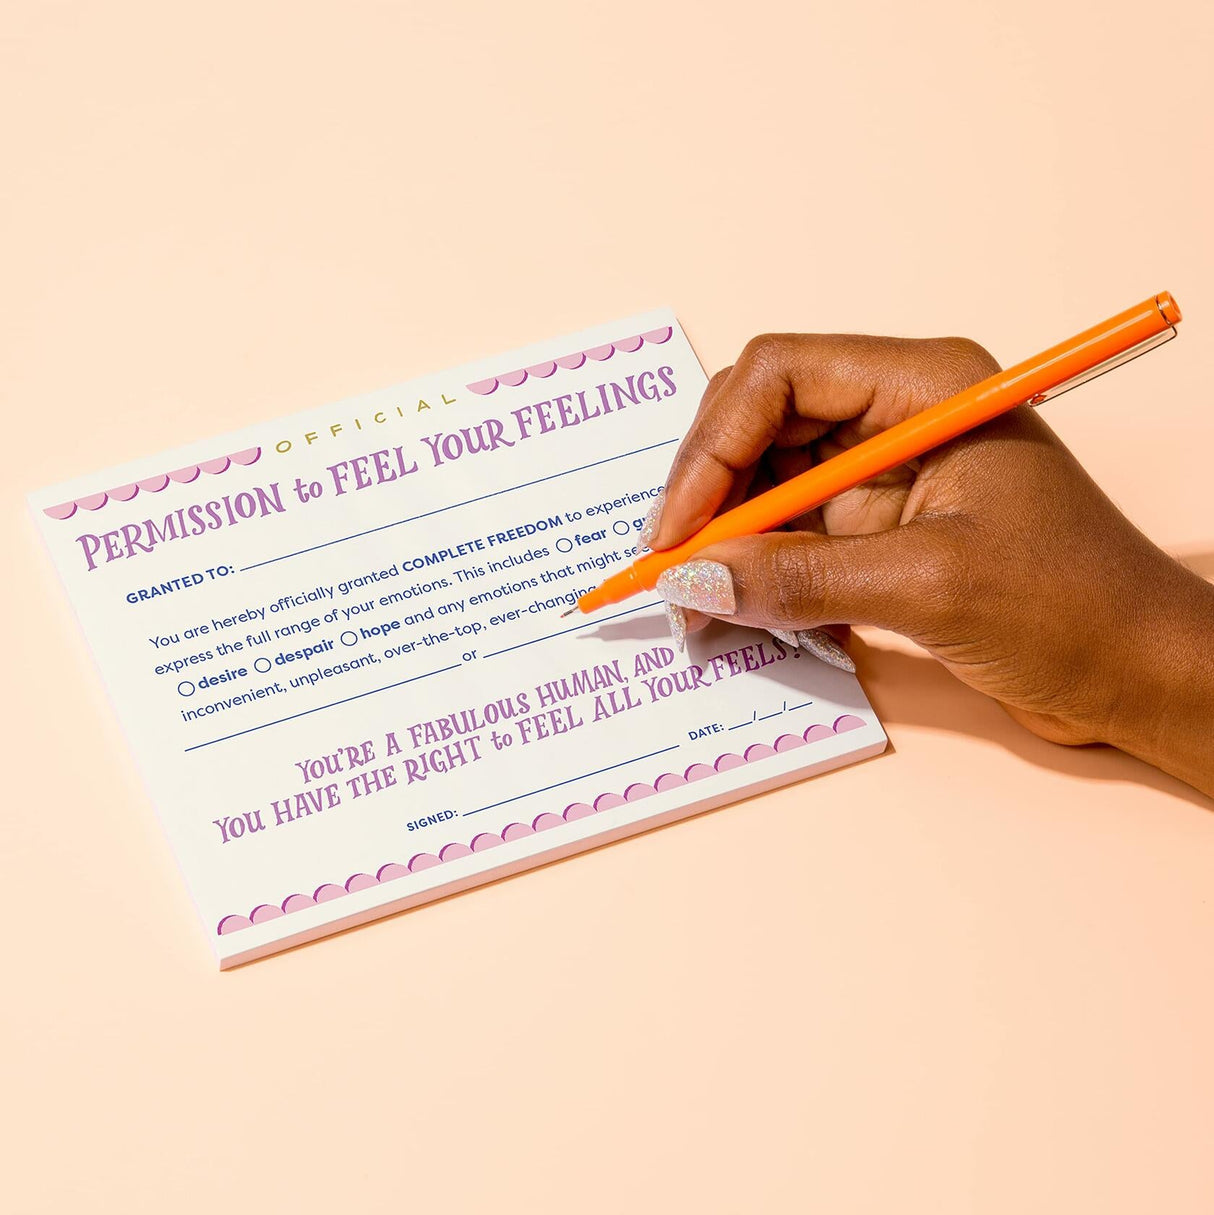 OFFICIAL
PERMISSION to FEEL YOUR FEELINGS
GRANTED TO:
You are hereby officially granted COMPLETE FREEDOM to experience
express the full range of your emotions. This includes fear
desire despair hope and any emotions that might
inconvenient, unpleasant, over-the-top, ever-changing
or
YOU'RE A FABULOUS HUMAN, AND
YOU HAVE THE RIGHT to FEEL ALL YOUR FEELS!
SIGNED: DATE: __/__/__